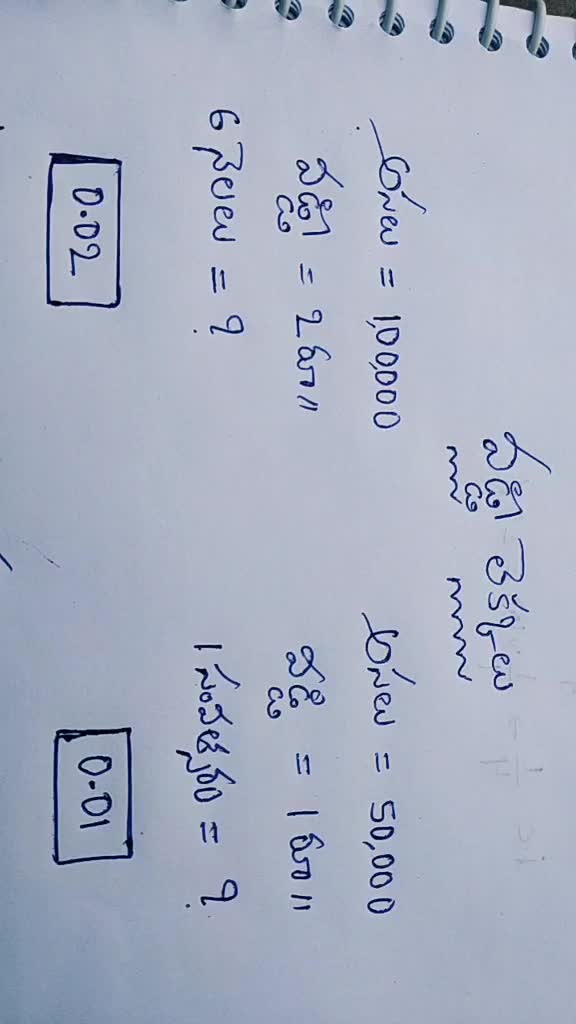 వడ్డీ లెక్కలు
అసలు = 1,00,000
వడ్డీ = 2 రూ॥
6 నెలలు = ?
0.02
అసలు = 50,000
వడ్డీ = 1 రూ॥
1 సంవత్సరం = ?
0.01